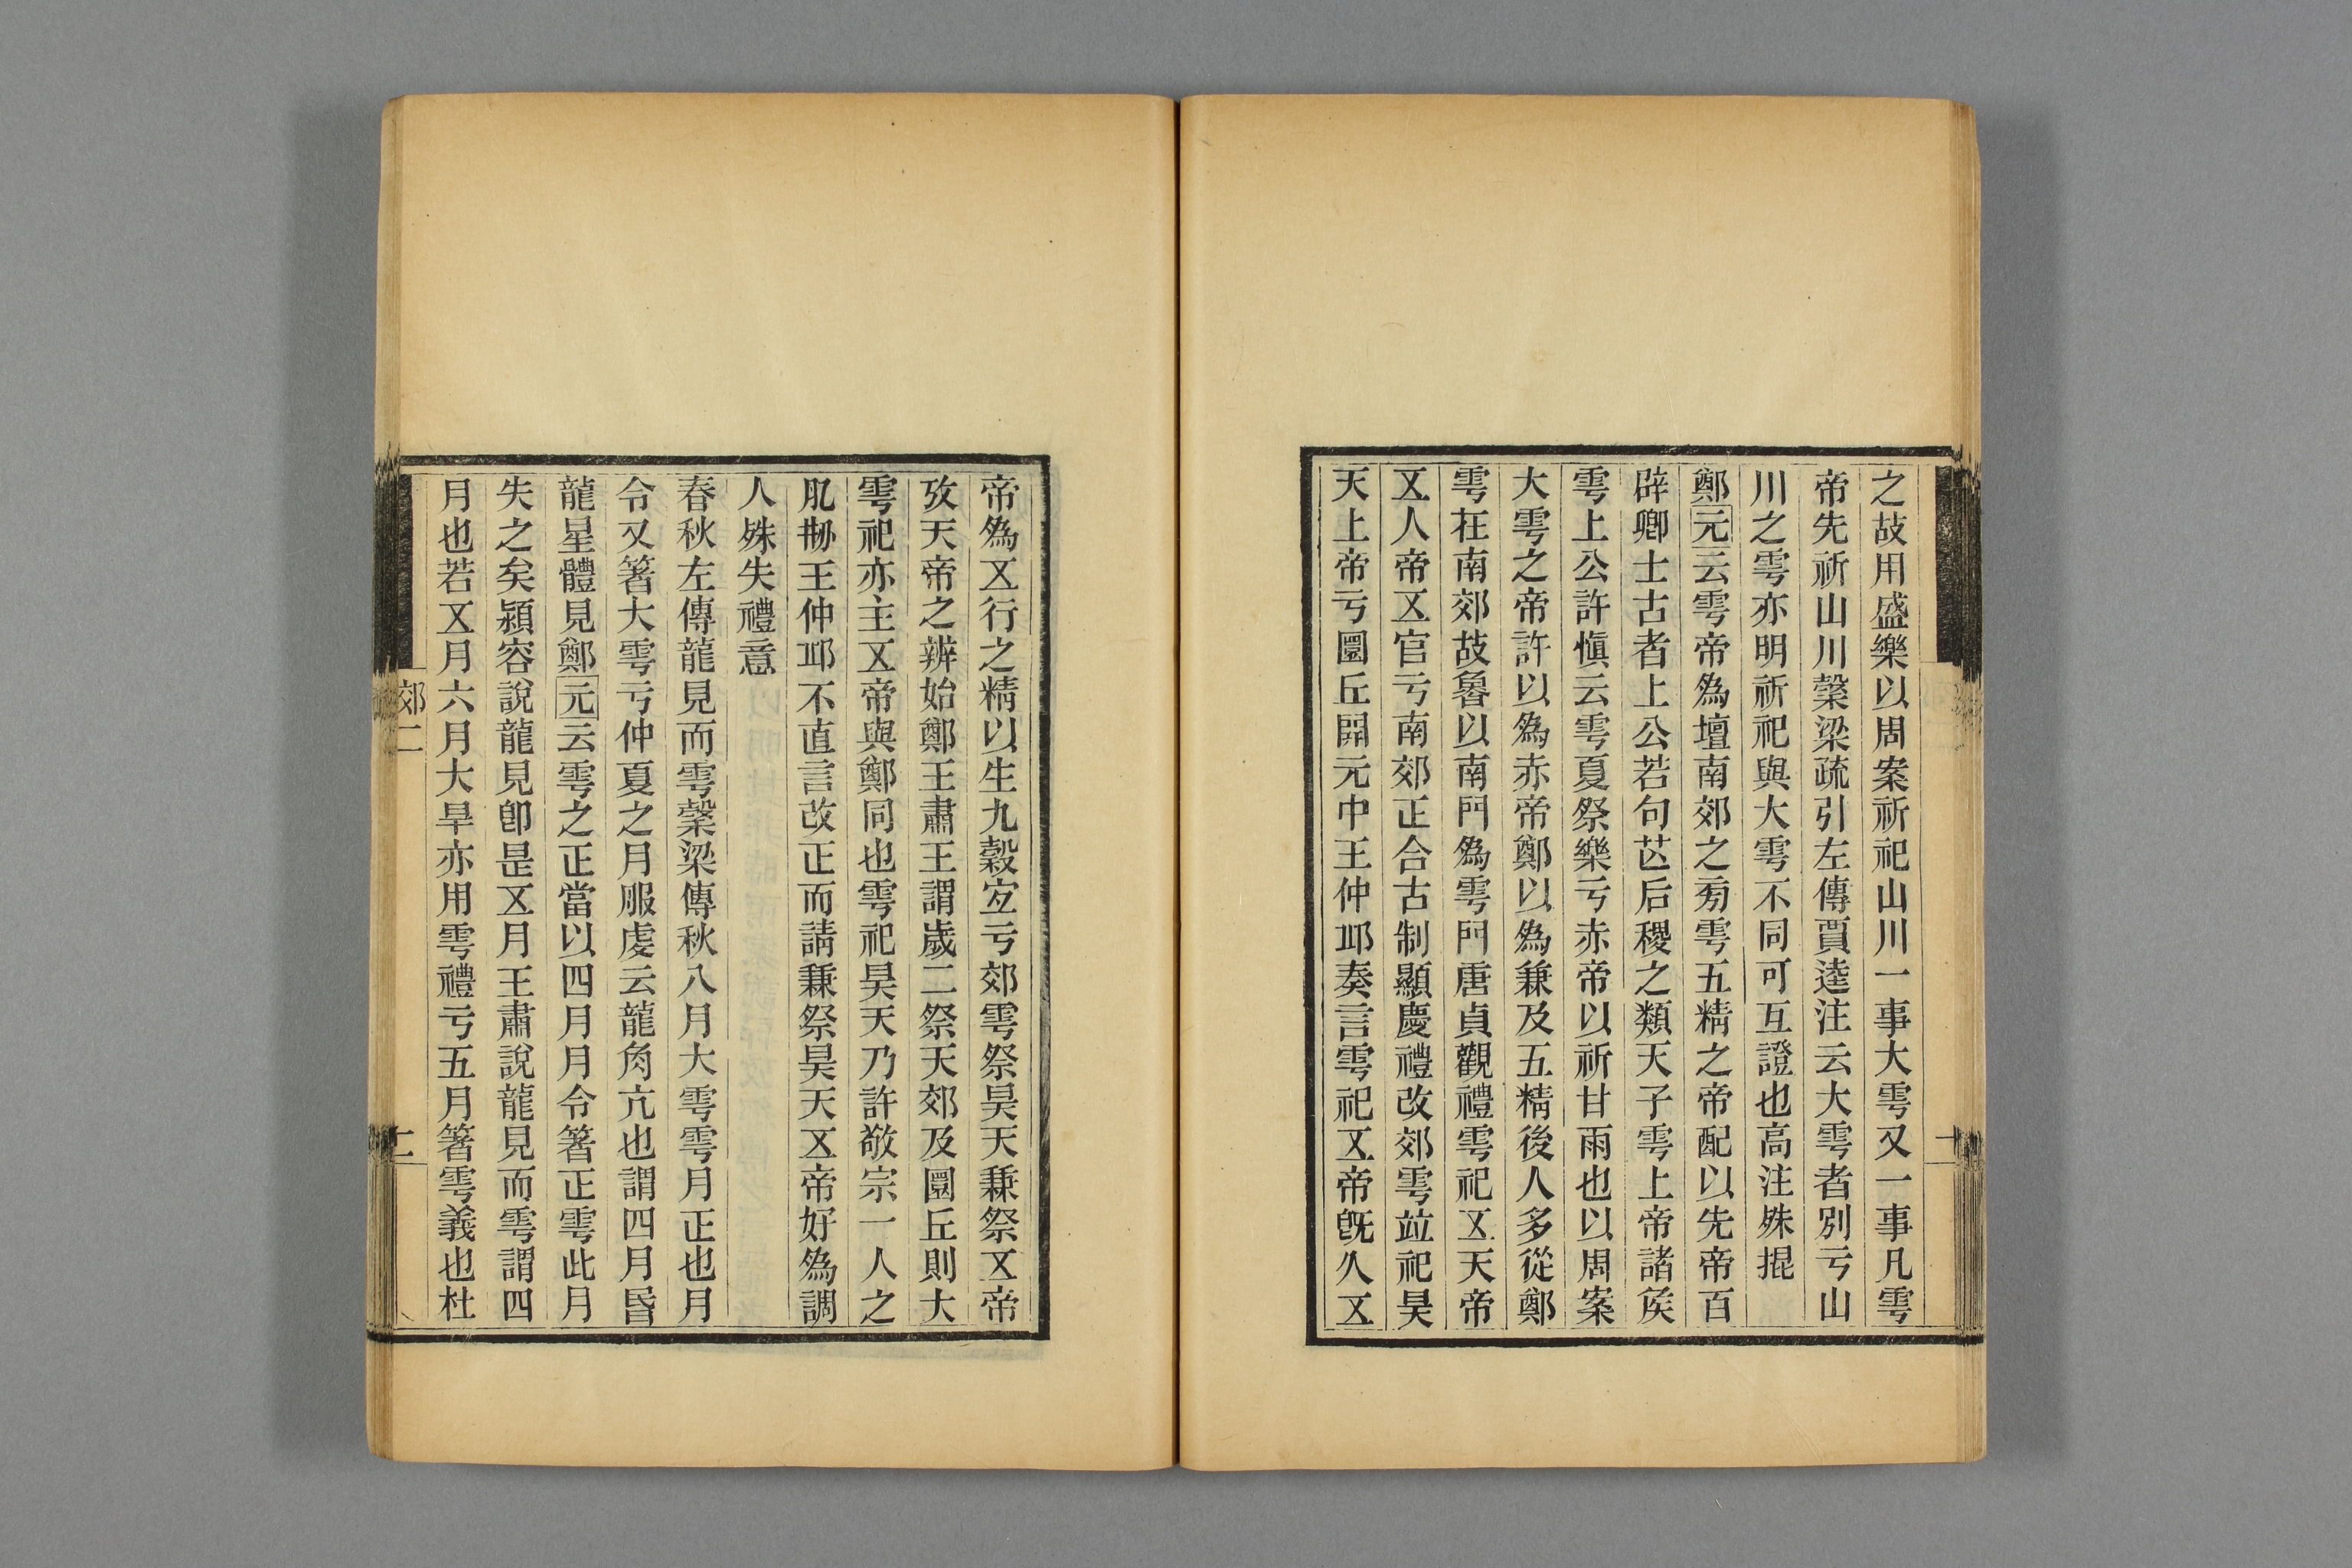 之故用盛樂以周案祈祀山川一事大雩又一事凡雩
帝先祈山川榖梁疏引左傳賈逵注云大雩者別亏山
川之雩亦明祈祀與大雩不同可互證也高注殊掍
鄭元云雩帝爲壇南郊之㫄雩五精之帝配以先帝百
辟卿士古者上公若句芒后稷之類天子雩上帝諸矦
雩上公許愼云雩夏祭樂亏赤帝以祈甘雨也以周案
大雩之帝許以爲赤帝鄭以爲兼及五精後人多從鄭
雩在南郊故魯以南門爲雩門唐貞觀禮雩祀㐅天帝
㐅人帝㐅官亏南郊正合古制顯慶禮改郊雩竝祀昊
天上帝亏圜丘開元中王仲邱奏言雩祀㐅帝旣久㐅
帝爲㐅行之精以生九穀宐亏郊雩祭昊天兼祭㐅帝
攷天帝之辨始鄭王肅王謂歲二祭天郊及圜丘則大
雩祀亦主㐅帝與鄭同也雩祀昊天乃許敬宗一人之
肊刱王仲邱不直言改正而請兼祭昊天㐅帝好爲調
人殊失禮意
春秋左傳龍見而雩榖梁傳秋八月大雩雩月正也月
令又箸大雩亏仲夏之月服虔云龍角亢也謂四月昏
龍星體見鄭元云雩之正當以四月月令箸正雩此月
失之矣潁容說龍見卽是㐅月王肅說龍見而雩謂四
月也若㐅月六月大旱亦用雩禮亏五月箸雩義也杜
郊二
二